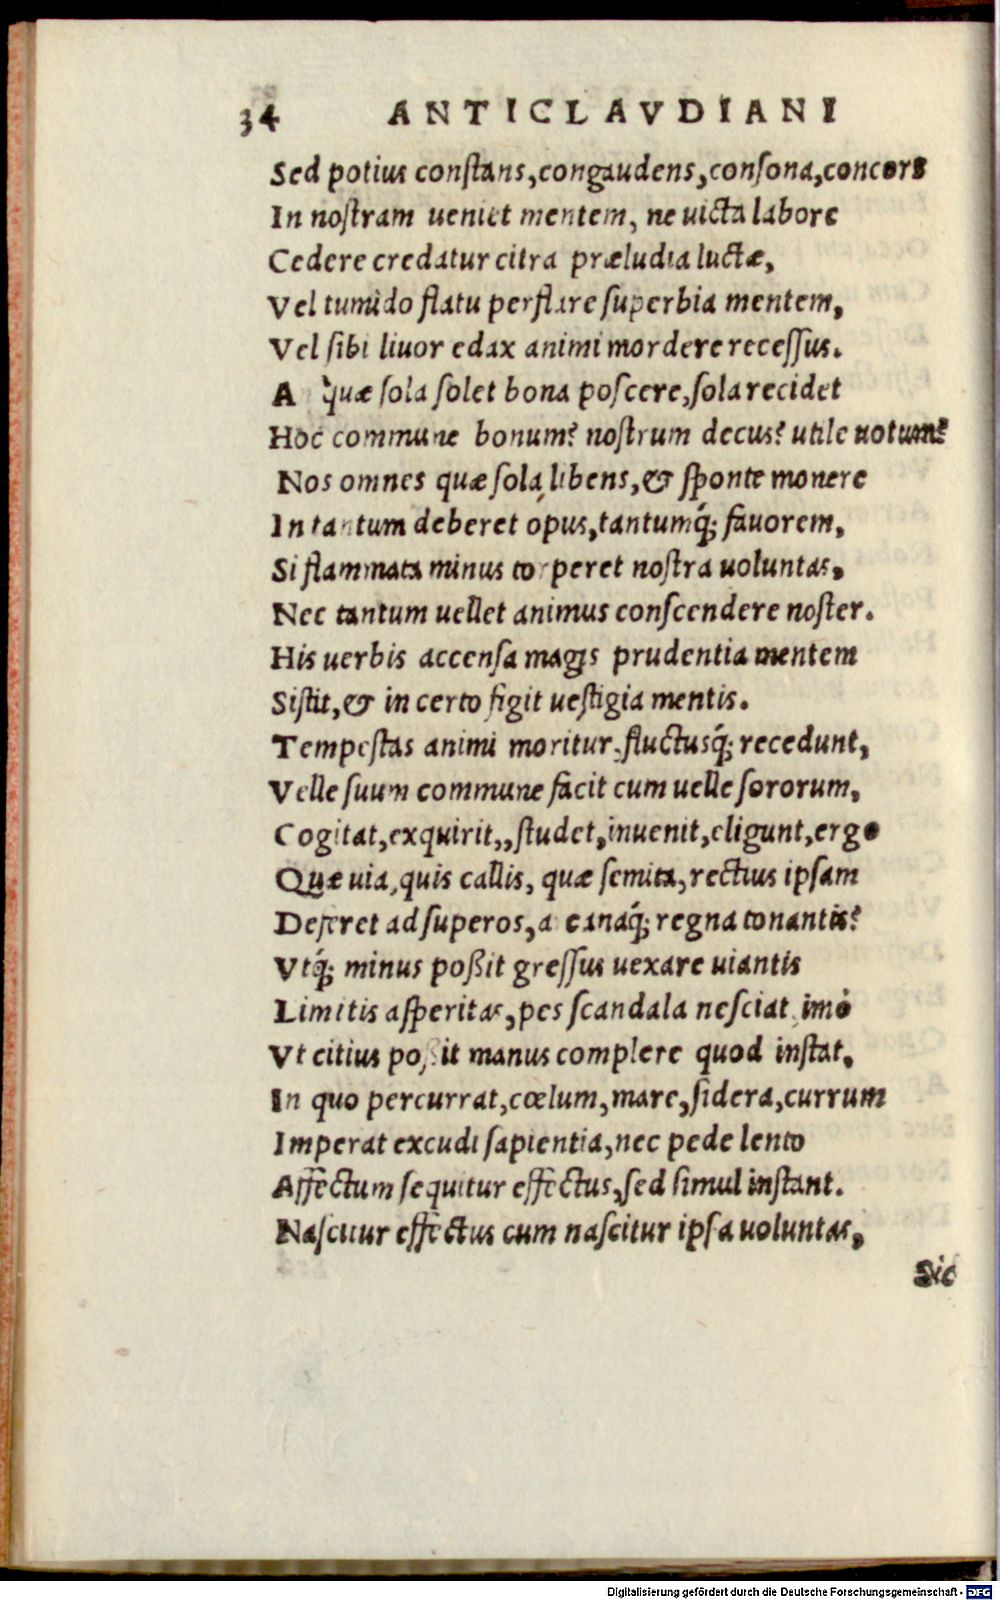 34 ANTICLAVDIANI
Sed potius conſtans,congaudens,conſona,concors
In noſtram ueniet mentem, ne uicta labore
Cedere credatur citra præludia luctæ,
Vel tumido flatu perflare ſuperbia mentem,
Vel ſibi liuor edax animi mordere receſſus.
A quæ ſola ſolet bona poſcere,ſola recidet
Hoc commune bonum? noſtrum decus? utile uotum?
Nos omnes quæ ſola libens,& ſponte monere
In tantum deberet opus,tantumq́; fauorem,
Si flammata minus torperet noſtra uoluntas,
Nec tantum uellet animus conſcendere noſter.
His uerbis accenſa magis prudentia mentem
Siſtit,& in certo figit ueſtigia mentis.
Tempeſtas animi moritur,fluctusq́; recedunt,
Velle ſuum commune facit cum uelle ſororum,
Cogitat,exquirit,,ſtudet,inuenit,eligunt,ergo
Quæ uia,quis callis, quæ ſemita,rectius ipſam
Deferet ad ſuperos,a canaq́; regna tonantis?
Vtq́; minus poßit greſſus uexare uiantis
Limitis aſperitas,pes ſcandala neſciat,imò
Vt citius poßit manus complere quod inſtat,
In quo percurrat,cœlum,mare,ſidera,currum
Imperat excudi ſapientia,nec pede lento
Affectum ſequitur effectus,ſed ſimul inſtant.
Naſcitur effectus cum naſcitur ipſa uoluntas,
Sic
Digitalisierung gefördert durch die Deutsche Forschungsgemeinschaft - DFG